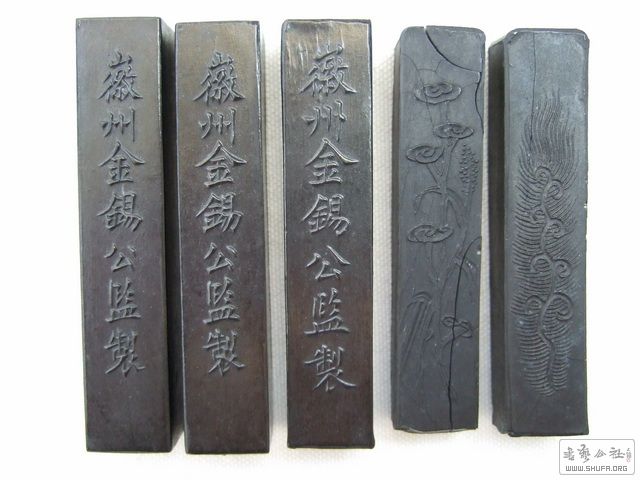 徽州金錫公監製
徽州金錫公監製
徽州金錫公監製
书艺公社
WWW.SHUFA.ORG